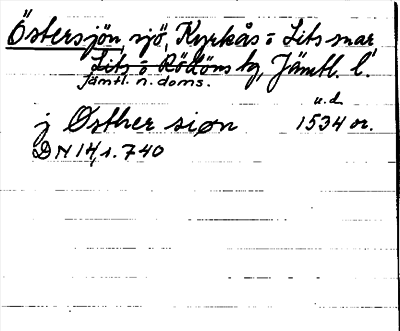 Östersjön, sjö, Kyrkås o Lits snar
Lits o Rödöns tg, Jämtl. l.
Jämtl. n. doms.
u.d.
j Østher siøn 1534 or.
DN 14,1. 740